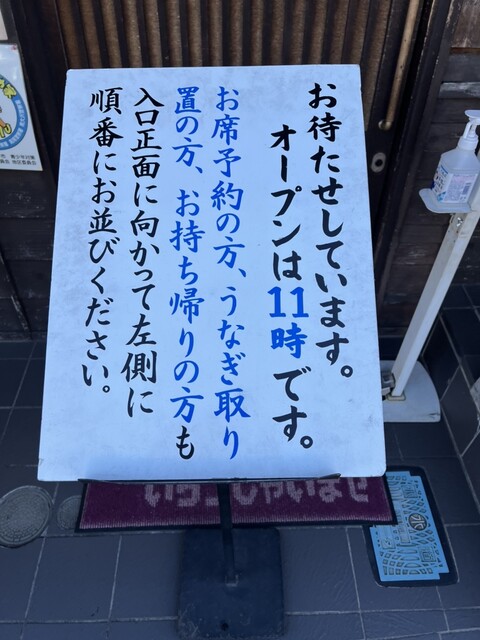 お待たせしています。
オープンは11時です。
お席予約の方、うなぎ取り
置の方、お持ち帰りの方も
入口正面に向かって左側に
順番にお並びください。
いらっしゃいませ